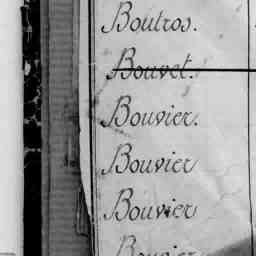 Boutros.
Bouvet.
Bouvier.
Bouvier
Bouvier
Bouvier